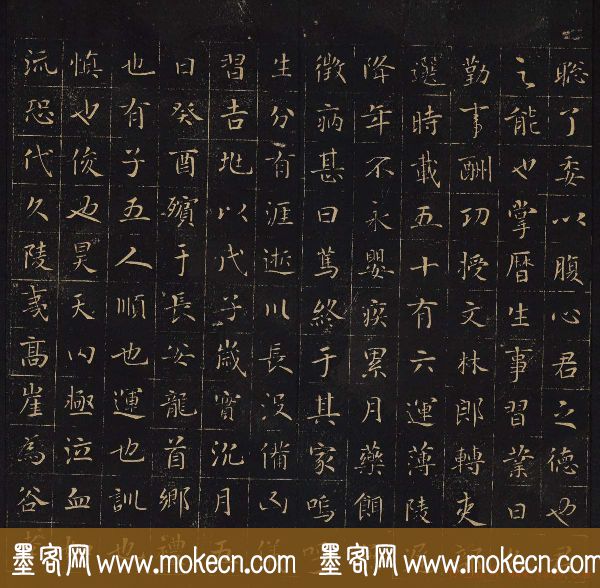 聡了委以腹心君之德也
之能也掌曆生事習業日
勤事酬功授文林郎轉吏
選時載五十有六運薄陵
降年不永嬰疾累月藥餌
徵病甚日篤終于其家嗚
生分有涯逝川長没備凶
習吉地以代子歲實沉月
日癸酉殯于長安龍首鄉
也有子五人順也運也訓
慎也俊也昊天罔極泣血
流恐代久陵夷高崖為谷
墨客网 www.mokecn.com 墨客网 www.mokecn.com